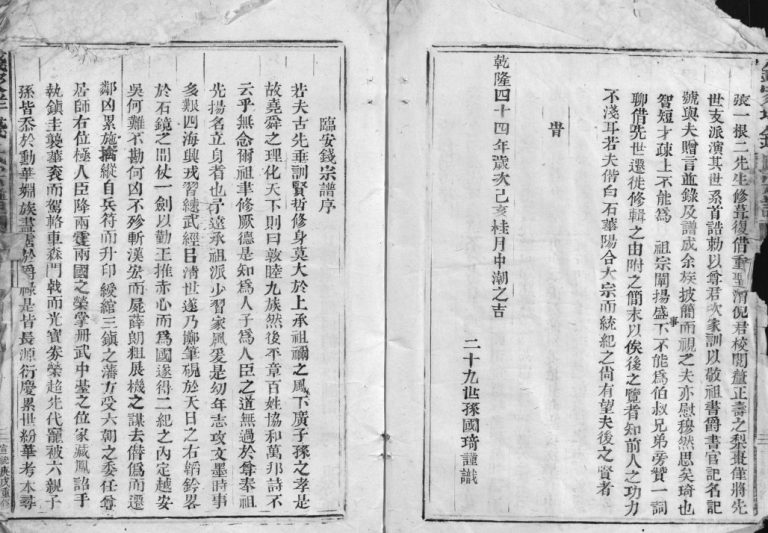 張一根二先生修葺復借重聖渭倪君校閱釐正壽之梨棗僅將先
世支派演其世系首誥勅以尊君次家訓以敬祖書爵書官記名記
號與夫贈言並錄及譜成余族披簡而視之夫亦慰穆然思矣琦也
智短才疎上不能爲 祖宗闡揚盛事下不能爲伯叔兄弟旁贊一詞
聊借先世遷徙修輯之由附之簡末以俟後之覽者知前人之功力
不淺耳若夫偕白石華陽合大宗而統紀之尚有望夫後之賢者
旹
乾隆四十四年歲次己亥桂月中潮之吉
二十九世孫國琦謹識
臨安錢宗譜序
若夫古先垂訓賢哲修身莫大於上承祖禰之風下廣子孫之孝是
故堯舜之理化天下則曰敦睦九族然後平章百姓協和萬邦詩不
云乎無念爾祖聿修厥德是知爲人子爲人臣之道無過於尊奉祖
先揚名立身者也予遠承祖派少習家風爰是幼年志攻文墨時事
多艱四海興戎習練武經口清世遂乃擲筆硯於天日之右韜鈐畧
於石鏡之間仗一劍以勤王推赤心而爲國遂得二紀之內定越安
吳何難不勘何凶不殄斬漢宏而屍薛朗粗展機之謀去僭僞而還
鄰凶累施擒縱自兵符而升印綬綰三鎮之藩方受六朝之委任尊
居師右位極人臣降兩電兩國之榮掌冊武中臺之位家藏鳳詔手
執鎮圭襲華袞而駕輅車森門戟而光寶券榮超先代寵被六親子
孫皆忝於勳華姻族盡霑於爵祿是皆長源衍慶累世紛華考本尋